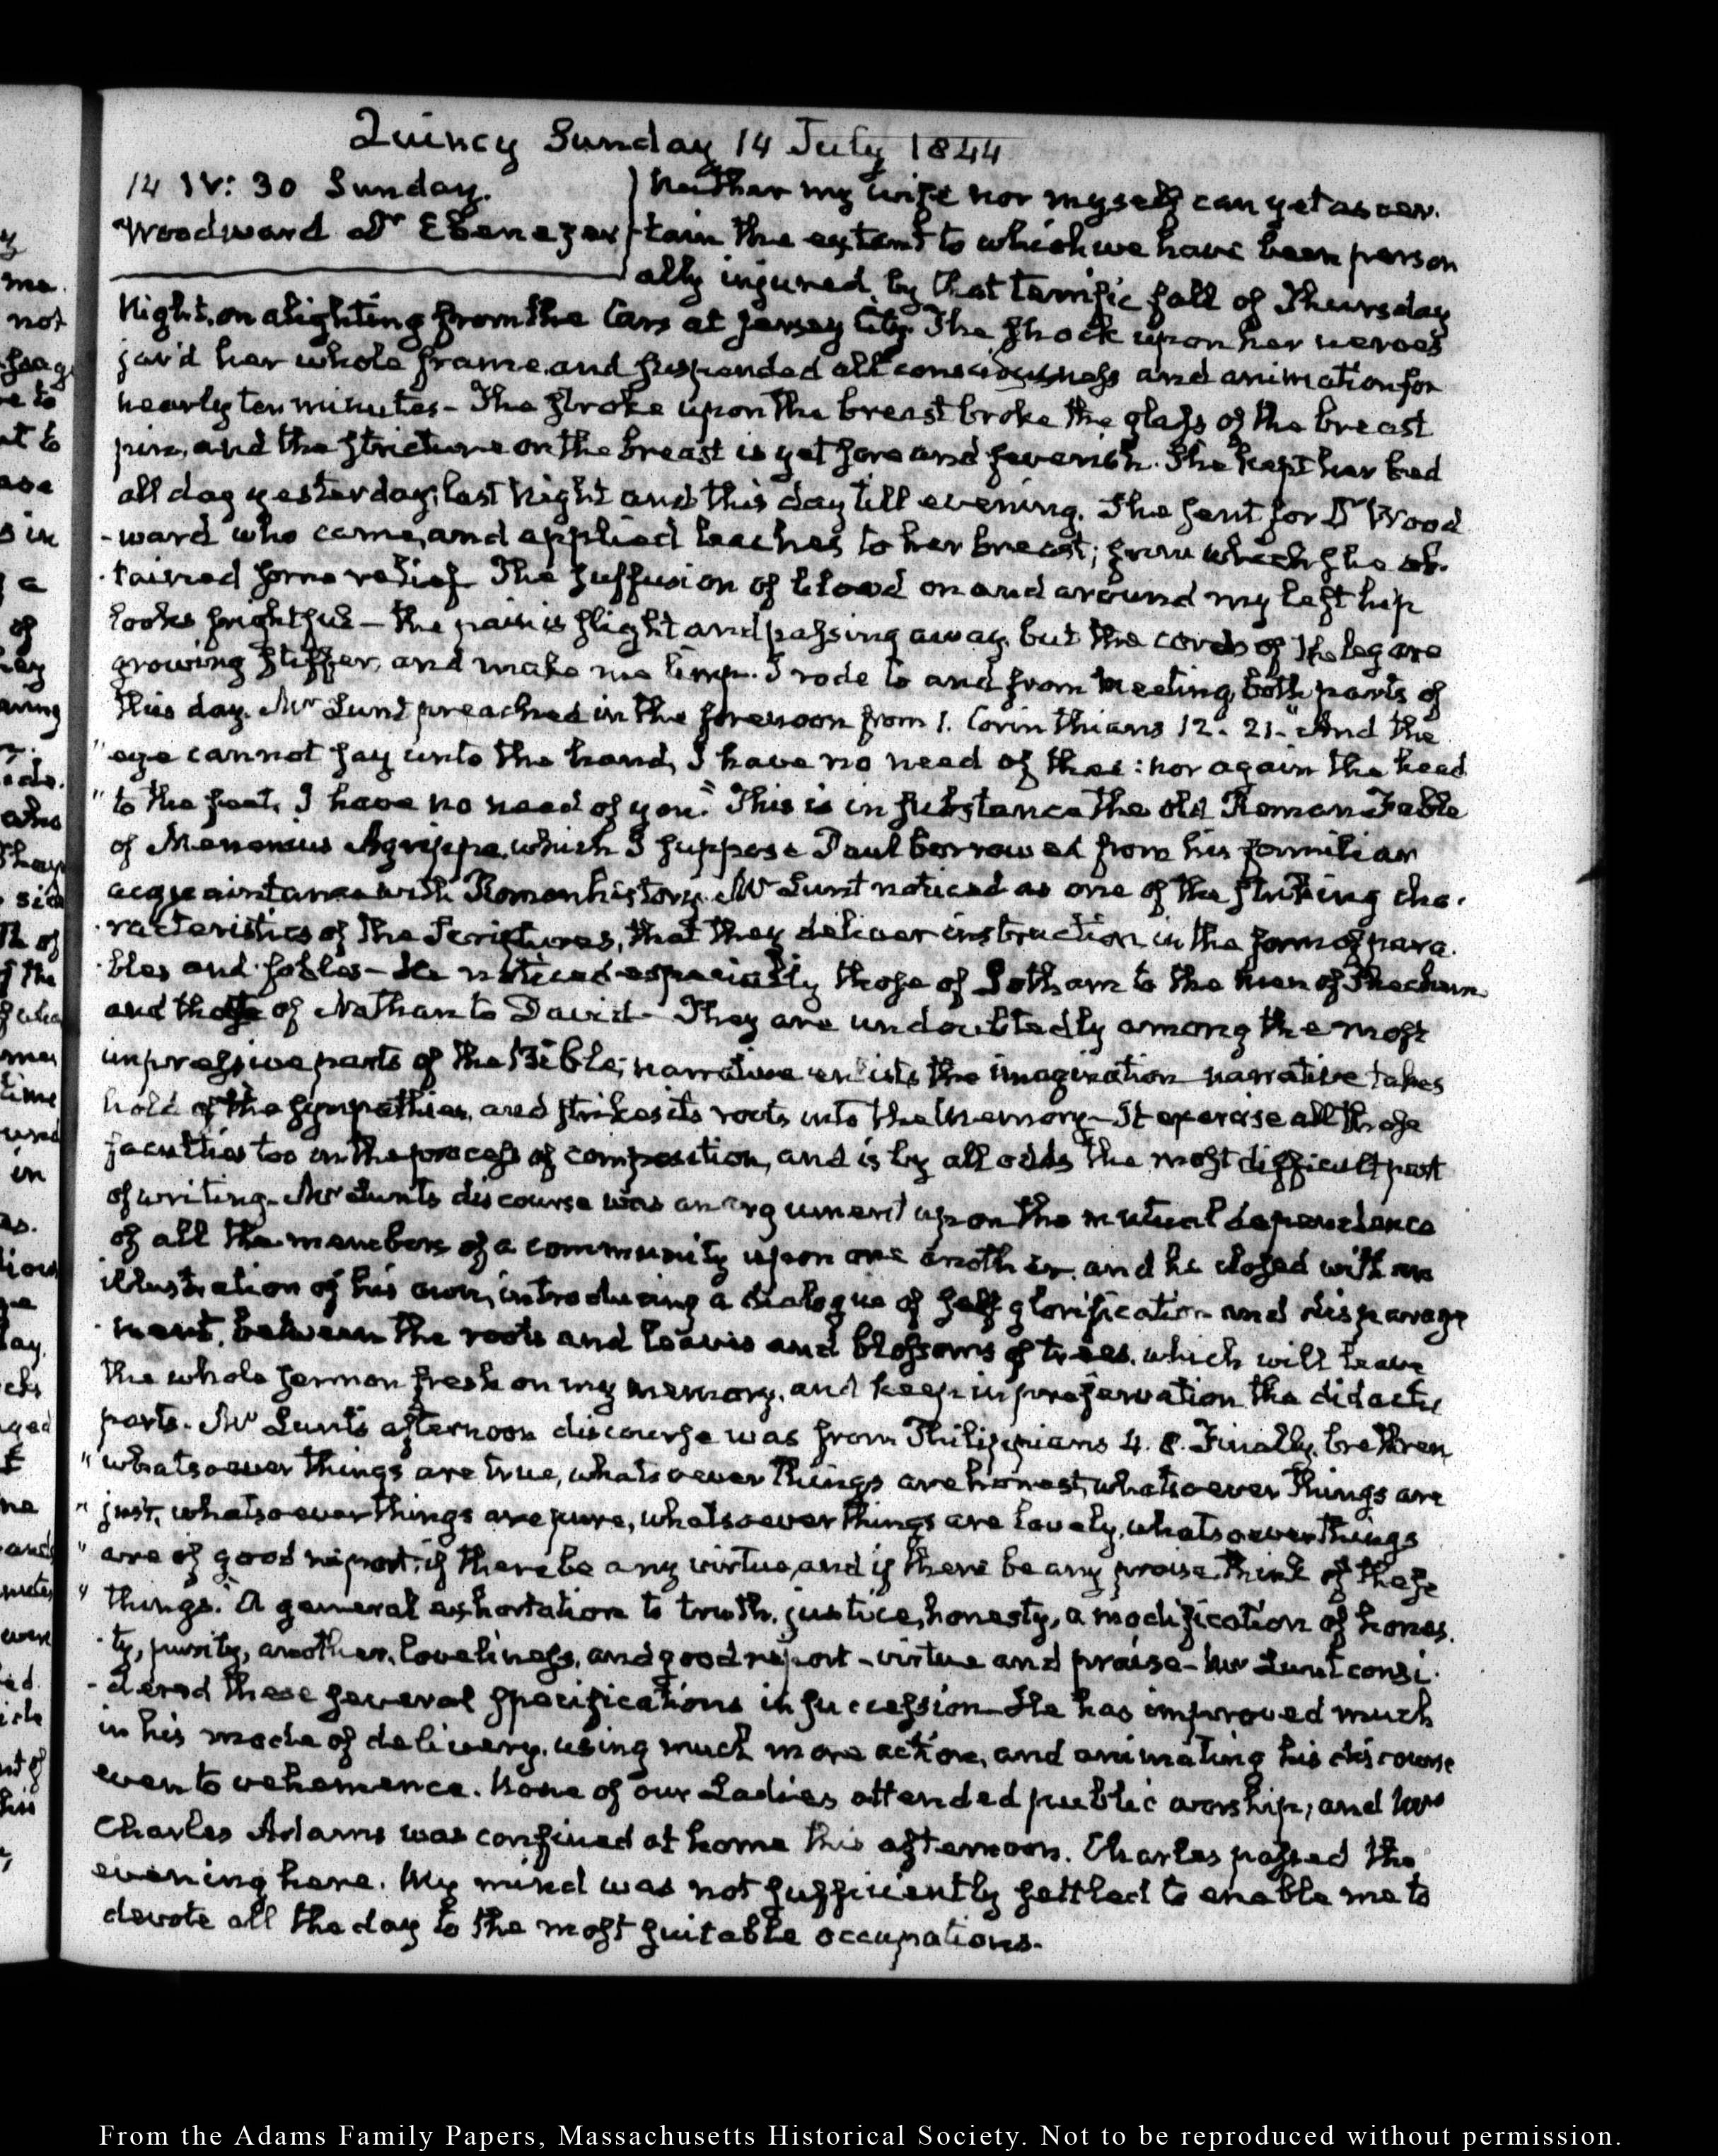 Quincy Sunday 14 July 1844
14 IV: 30 Sunday.
Woodward Dr Ebenezer
Neither my wife nor myself can yet ascer-
tain the extent to which we have been person
ally injured, by that terrific fall of Thursday
Night, on alighting from the Cars at Jersey City. The shock upon her nerves
jar'd her whole frame, and suspended all consciousness and animation for
nearly ten minutes - The stroke upon the breast broke the glass of the breast
pin, and the stricture on the breast is yet sore and feverish. She kept her bed
all day yesterday, last Night and this day till evening. She sent for Dr Wood
-ward who came, and applied leaches to her breast; from which she ob-
-tained some relief. The suffusion of blood on and around my left hip
looks frightful - the pain is slight and passing away, but the cords of the leg are
growing stiffer, and make me limp. I rode to and from Meeting, both parts of
this day. Mr Lunt preached in the forenoon from 1. Corinthians 12. 21. "And the
"eye cannot say unto the hand, I have no need of thee: nor again the head
"to the feet, I have no need of you." This is in substance the old Roman Fable
of Menenius Agrippa, which I suppose Paul borrowed from his familiar
acquaintance with Roman history. Mr Lunt noticed as one of the striking cha-
-racteristics of the Scriptures, that they deliver instruction in the form of para-
-bles and fables - He noticed especially those of Jotham to the men of Shechem
and those of Nathan to David - They are undoubtedly among the most
impressive parts of the Bible; narrative enlists the imagination narrative takes
hold of the sympathies, and strikes its roots into the Memory - It exercise all those
faculties too in the process of composition, and is by all odds the most difficult part
of writing. Mr Lunt's discourse was an argument upon the mutual dependence
of all the members of a community upon one another, and he closed with an
illustration of his own, introducing a dialogue of self glorification and disparage
-ment, between the roots and leaves and blossoms of trees, which will leave
the whole sermon fresh on my memory, and keep in preservation the didactic
parts. Mr Lunt's afternoon discourse was from Philippians 4. 8. Finally, brethren,
"whatsoever things are true, whatsoever things are honest, whatsoever things are
"just, whatsoever things are pure, whatsoever things are lovely, whatsoever things
"are of good report; if there be any virtue, and if there be any praise, think of these
"things." A general exhortation to truth, justice, honesty, a modification of hones-
-ty, purity, another, loveliness, and good report - virtue and praise - Mr Lunt consi-
-dered these several specifications in succession - He has improved much
in his mode of delivery, using much more action, and animating his discourse
even to vehemence. None of our Ladies attended public worship; and Mrs
Charles Adams was confined at home this afternoon. Charles passed the
evening here. My mind was not sufficiently settled to enable me to
devote all the day to the most suitable occupations.
From the Adams Family Papers, Massachusetts Historical Society. Not to be reproduced without permission.